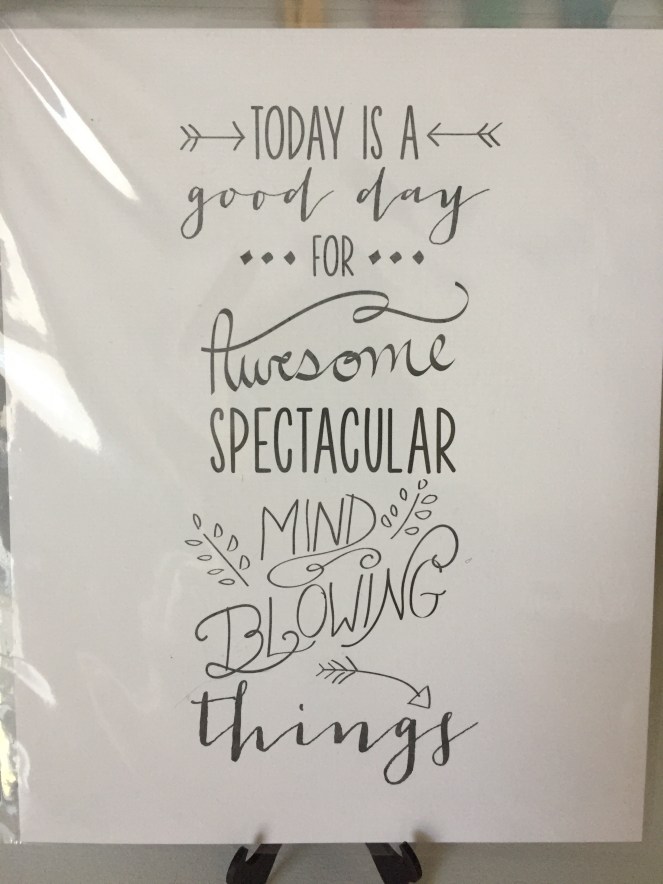 TODAY IS A
good day
FOR
Awesome
SPECTACULAR
MIND
BLOWING
things